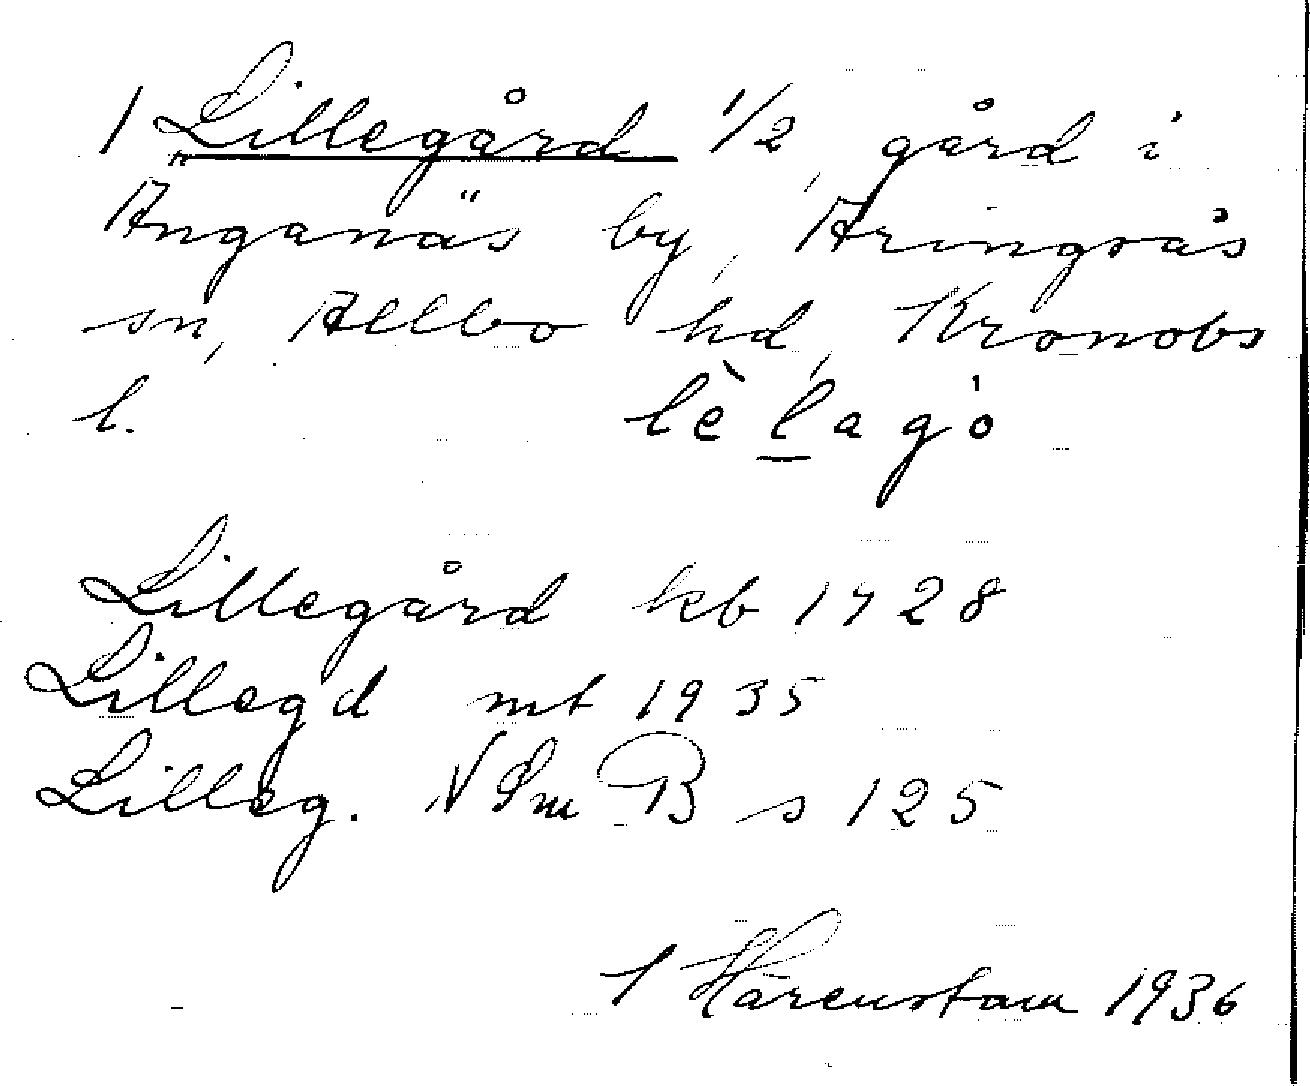 1 Lillegård 1/2 gård i
Änganäs by, Aringsås
sn, Allbo hd, Kronobs
l. lèlagȯ
Lillegård kb 1728
Lillegd mt 1935
Lilleg. NSmB s 125
Härenstam 1936